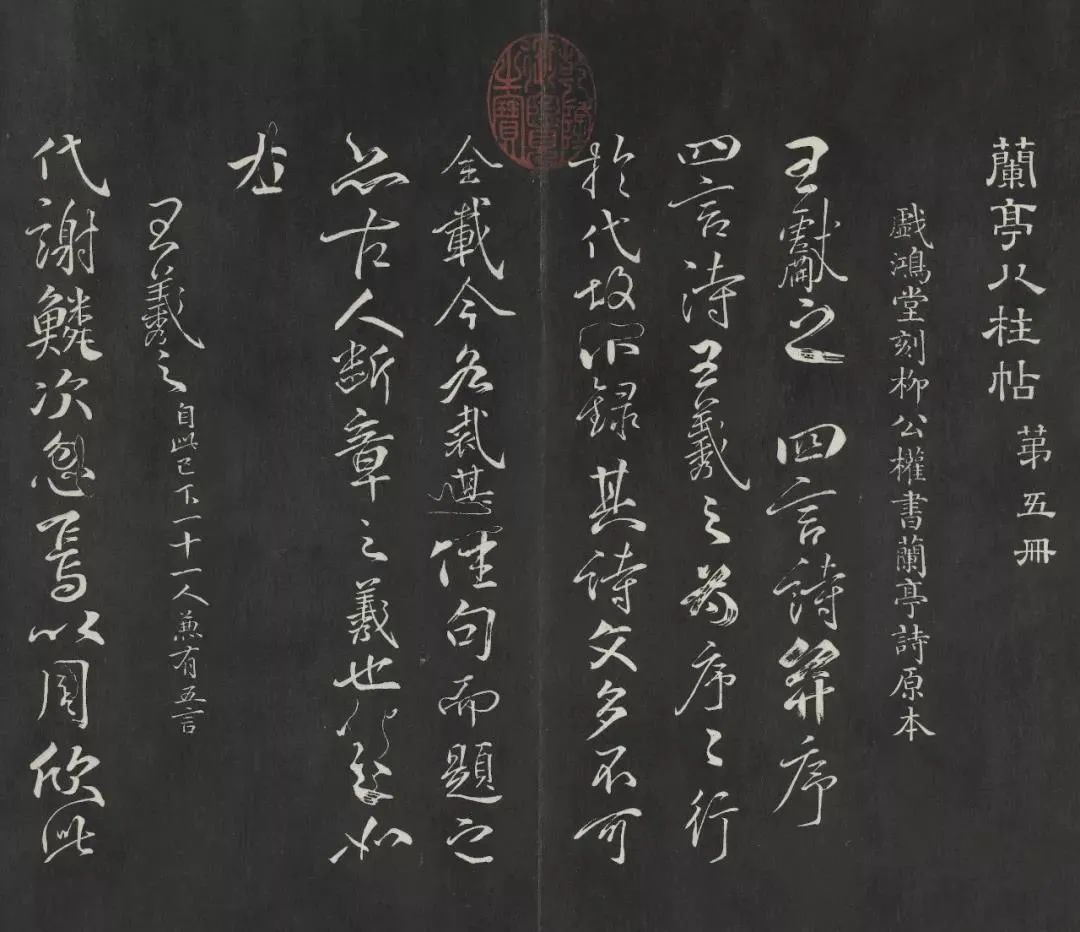 蘭亭八柱帖 苐五冊
戲鴻堂刻柳公權書蘭亭詩原本
王獻之 四言詩并序
四言詩王羲之為序序行
於代故不録其詩文多不可
全載今各裁其佳句而題之
亦古人斷章之義也 如
左
王羲之 自此已下一十一人兼有五言
代謝鱗次忽焉以周欣此